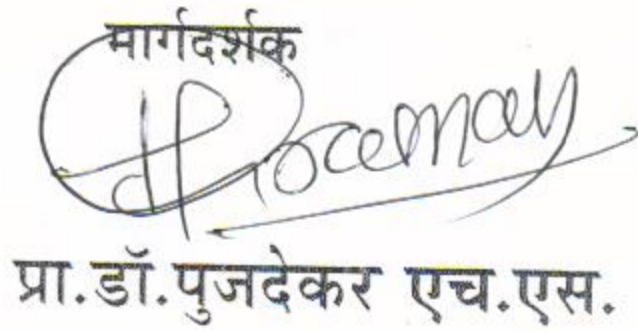 मार्गदर्शक
प्रा.डॉ.पुजदेकर एच.एस.